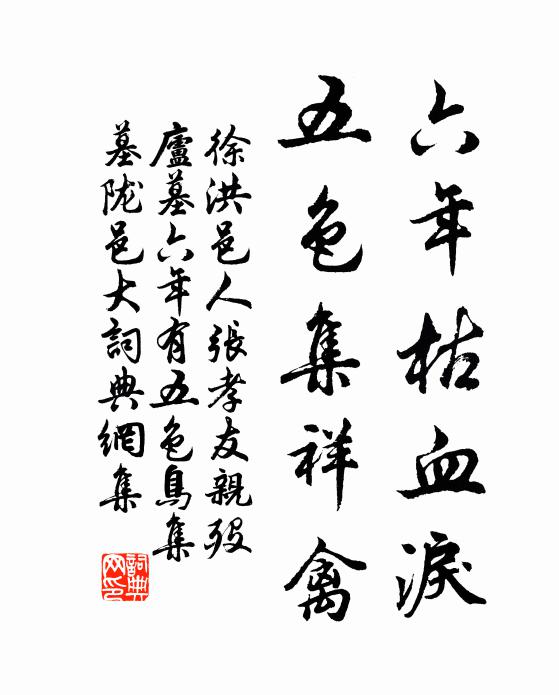 六年枯血淚
五色集祥禽
徐洪邑人張孝友親歿
廬墓六年有五色鳥集
墓陇邑大詞典網集
詞典
网印